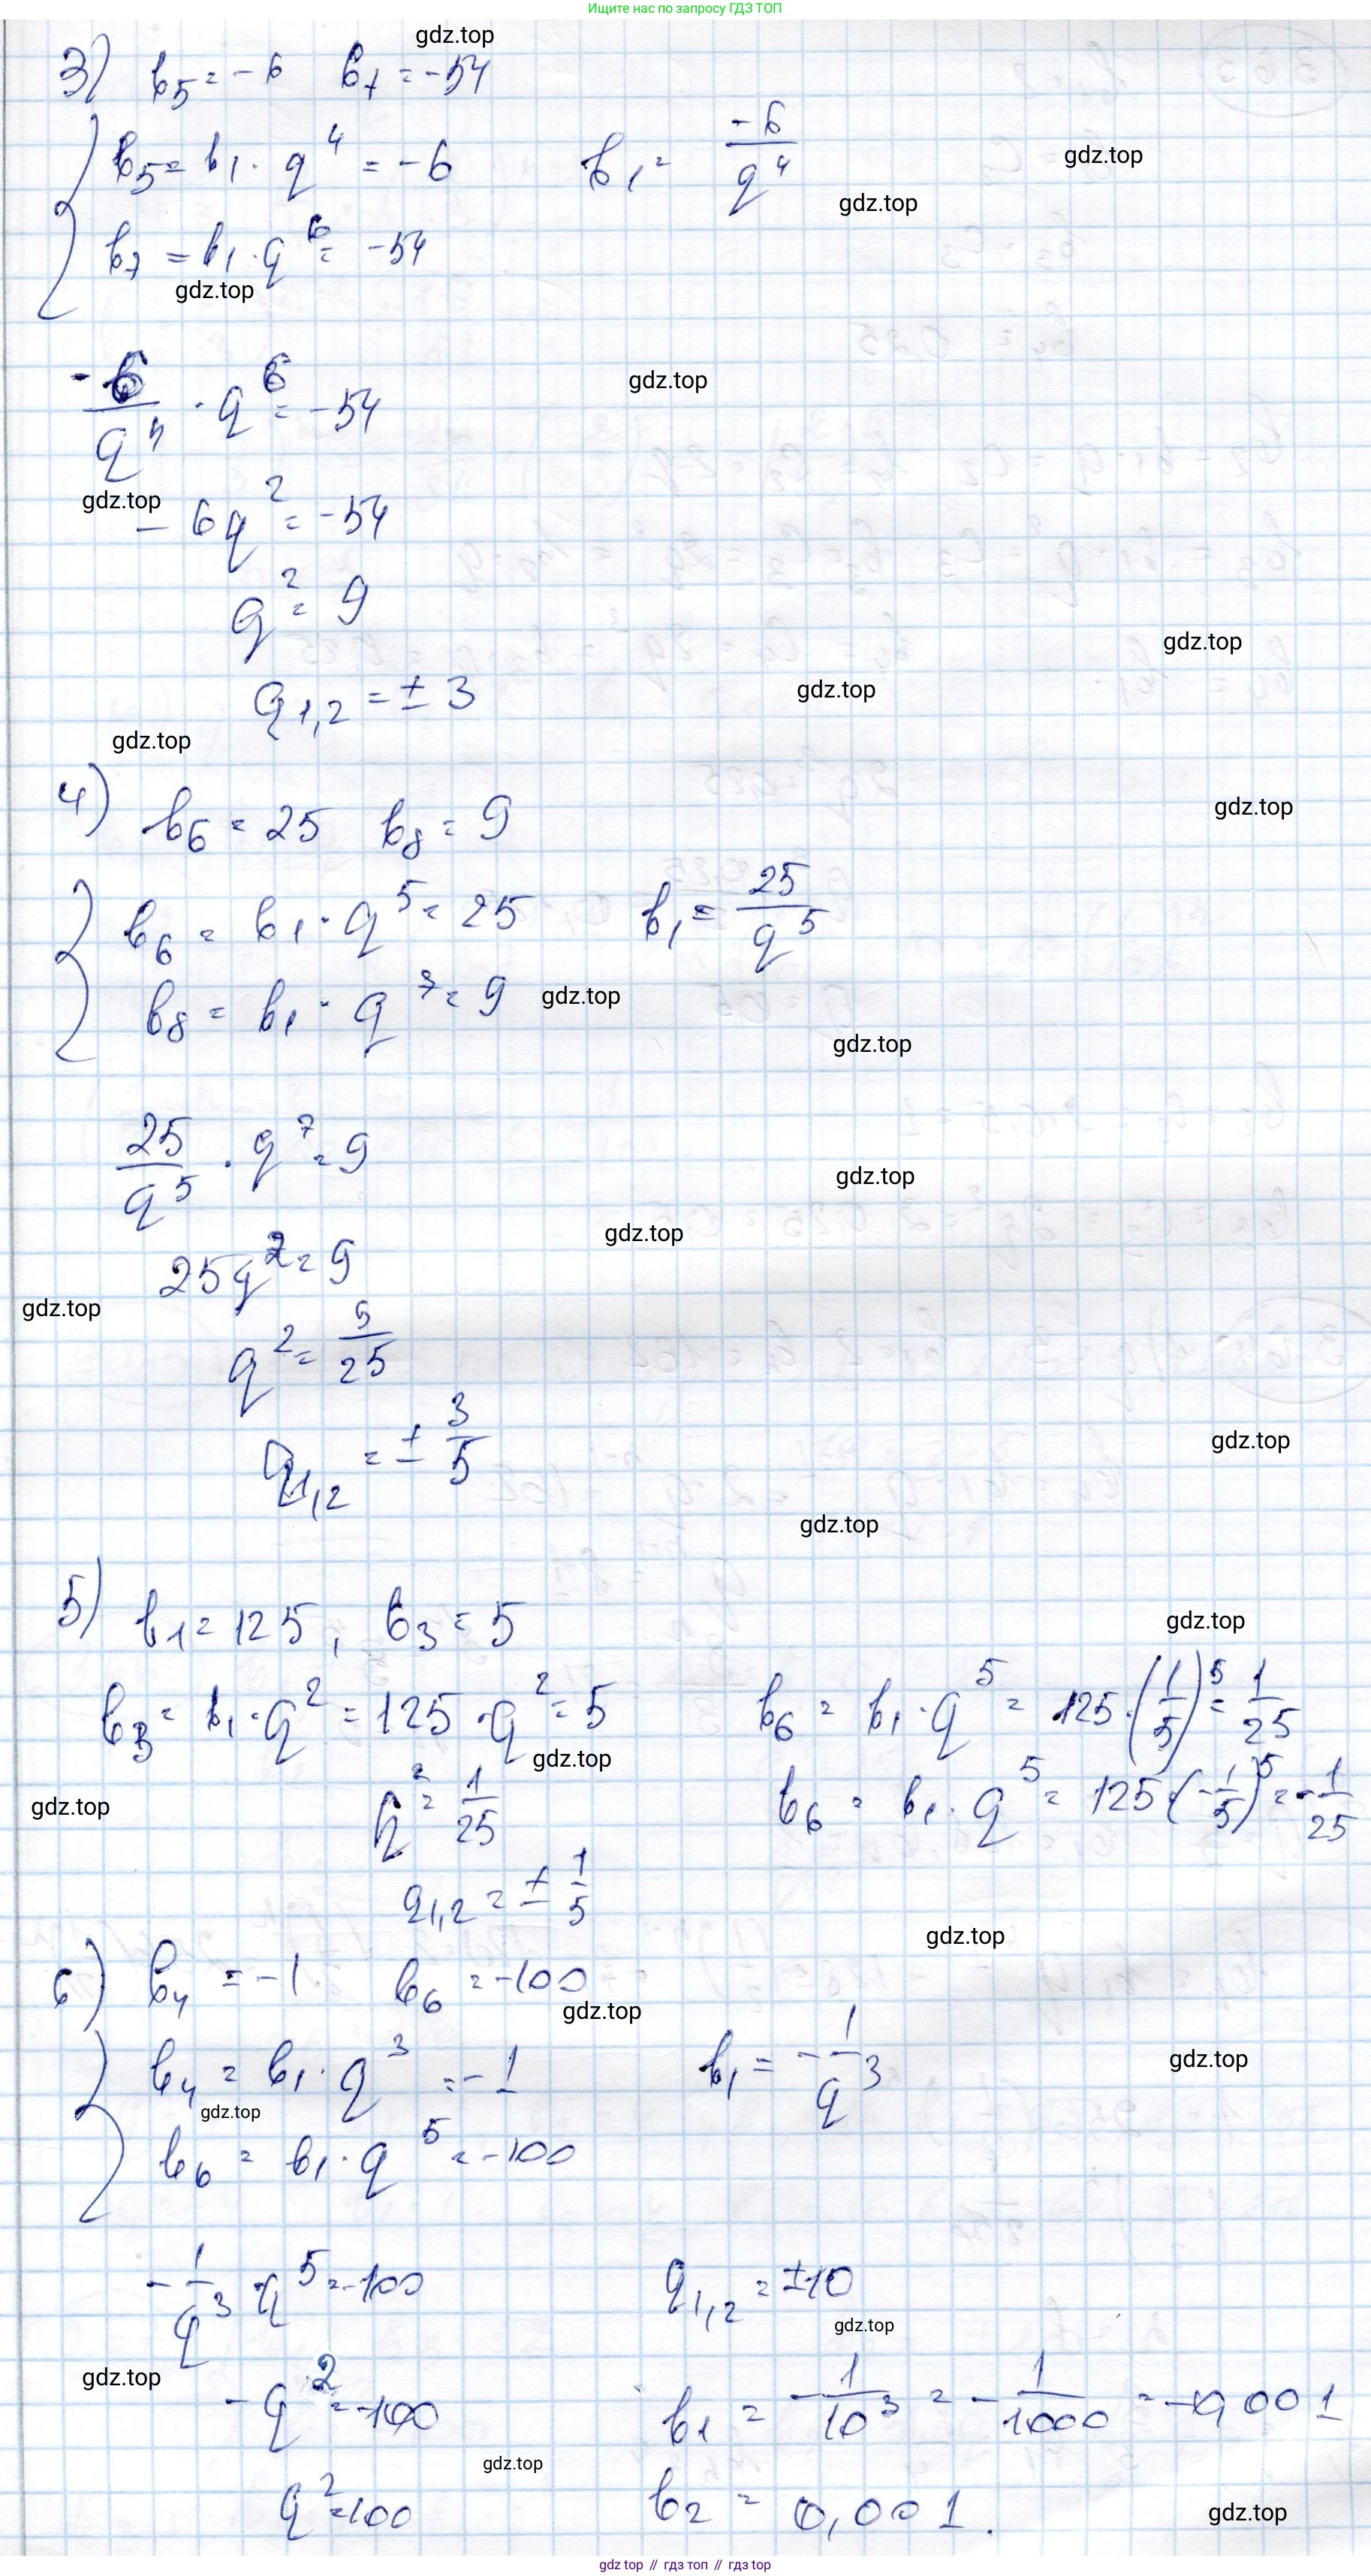 Ищите нас по запросу ГДЗ ТОП
gdz.top
3) b₅ = -6 b₇ = -54
b₅ = b₁ · q⁴ = -6 b₁ = -6/q⁴
gdz.top
gdz.top
b₇ = b₁ · q⁶ = -54
gdz.top
-6/q⁴ · q⁶ = -54
gdz.top
gdz.top
-6q² = -54
q² = 9
gdz.top
q₁,₂ = ± 3
gdz.top
gdz.top
4) b₆ = 25 b₈ = 9
gdz.top
b₆ = b₁ · q⁵ = 25 b₁ = 25/q⁵
b₈ = b₁ · q⁷ = 9
gdz.top
gdz.top
25/q⁵ · q⁷ = 9
gdz.top
gdz.top
25q² = 9
gdz.top
q² = 9/25
q₁,₂ = ± 3/5
gdz.top
gdz.top
5) b₁ = 125, b₃ = 5
gdz.top
b₃ = b₁ · q² = 125 · q² = 5 b₆ = b₁ · q⁵ = 125 · (1/5)⁵ = 1/25
gdz.top
q² = 1/25 b₆ = b₁ · q⁵ = 125 · (-1/5)⁵ = -1/25
gdz.top
q₁,₂ = ± 1/5
gdz.top
6) b₄ = -1 b₆ = -100
gdz.top
b₄ = b₁ · q³ = -1 b₁ = -1/q³
gdz.top
gdz.top
b₆ = b₁ · q⁵ = -100
-1/q³ · q⁵ = -100 q₁,₂ = ±10
gdz.top
gdz.top
-q² = -100 b₁ = -1/10³ = -1/1000 = -0,001
gdz.top
q² = 100 b₂ = 0,001.
gdz.top
gdz top // гдз топ // гдз top